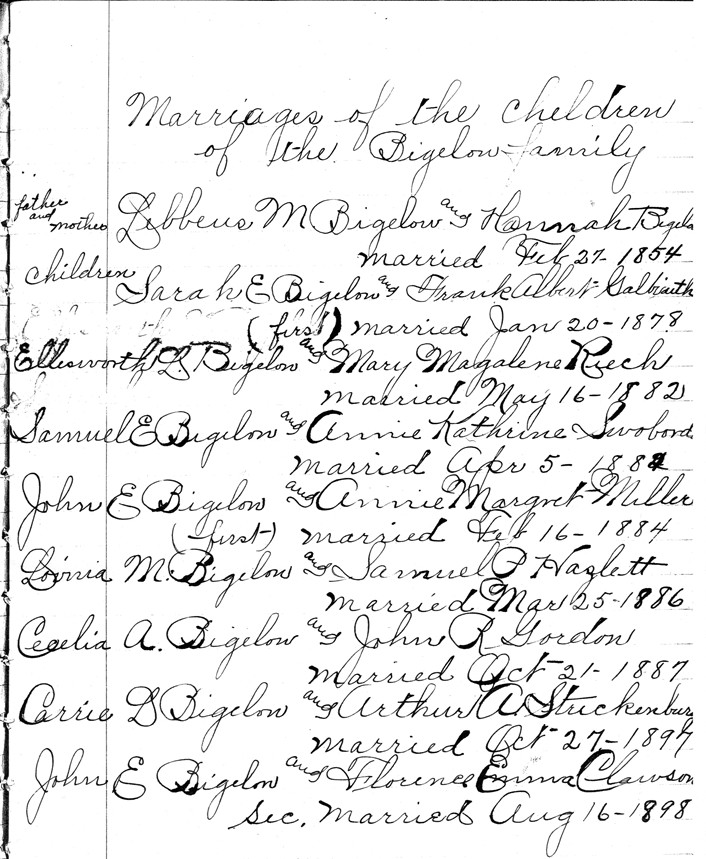 Marriages of the Cheldren
of the Bigelow family
father and mother Lebbeus M Bigelow and Hannah Bigelo
married Feb 27-1854
children
Sarah E Bigelow and Frank Albert Galbraith
(first) married Jan 20-1878
Ellesworth L. Bigelow and Mary Magalene Riech
married May 16-1882
Samuel E Bigelow and Annie Kathrine Swobord
married Apr 5-188
John E Bigelow and Annie Margret Miller
(first) married Feb 16-1884
Lovinia M. Bigelow and Samuel P Hazlett
married Mar 25-1886
Cecelia A. Bigelow and John R Gordon
married Oct 21-1887
Carrie D Bigelow and Arthur A. Strickenburg
married Oct 27-1897
John E Bigelow and Florence Emma Clawson
Sec. married Aug 16-1898